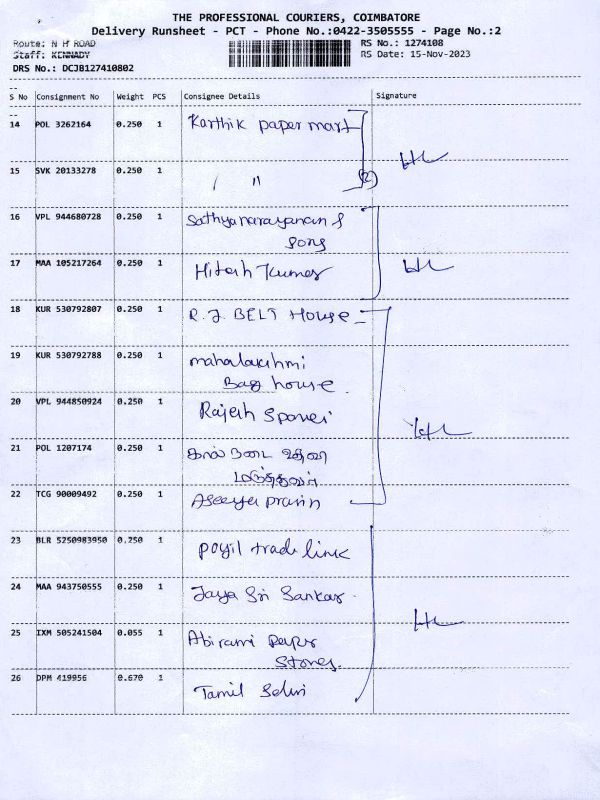 THE PROFESSIONAL COURIERS, COIMBATORE
Delivery Runsheet - PCT - Phone No.:0422-3505555 - Page No.:2
Route: N H ROAD RS No.: 1274108
Staff: KENNADY RS Date: 15-Nov-2023
DRS No.: DCJB127410802
S No Consignment No Weight PCS Consignee Details Signature
14 POL 3262164 0.250 1 Karthik paper mart
15 SVK 20133278 0.250 1 , "
16 VPL 944680728 0.250 1 Sathyanarayanan &
Sons
17 MAA 105217264 0.250 1 Hitesh Kumar
18 KUR 530792807 0.250 1 R.J. BELT House
19 KUR 530792788 0.250 1 mahalakshmi
Bag house
20 VPL 944850924 0.250 1 Rajesh
21 POL 1207174 0.250 1
22 TCG 90009492 0.250 1
23 BLR 5250983950 0.250 1 poyil trade link
24 MAA 943750555 0.250 1 Jaya Sri Sankar
25 IXM 505241504 0.055 1 Abirami paper
Stores.
26 DPM 419956 0.670 1 Tamil Selvi